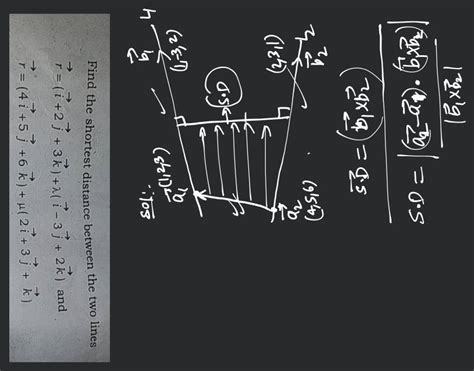 Find the shortest distance between the two lines
r⃗ = (i⃗ + 2j⃗ + 3k⃗) + λ(i⃗ − 3j⃗ + 2k⃗) and
r⃗ = (4i⃗ + 5j⃗ + 6k⃗) + μ(2i⃗ + 3j⃗ + k⃗)
Sol:
a⃗₁ (1,2,3)
b⃗₁ (1,-3,2)
S.D
a⃗₂ (4,5,6)
b⃗₂
L₂
S⃗.D = (b⃗₁×b⃗₂)
S.D = |(a⃗₂−a⃗₁)·(b⃗₁×b⃗₂)| / |b⃗₁×b⃗₂|